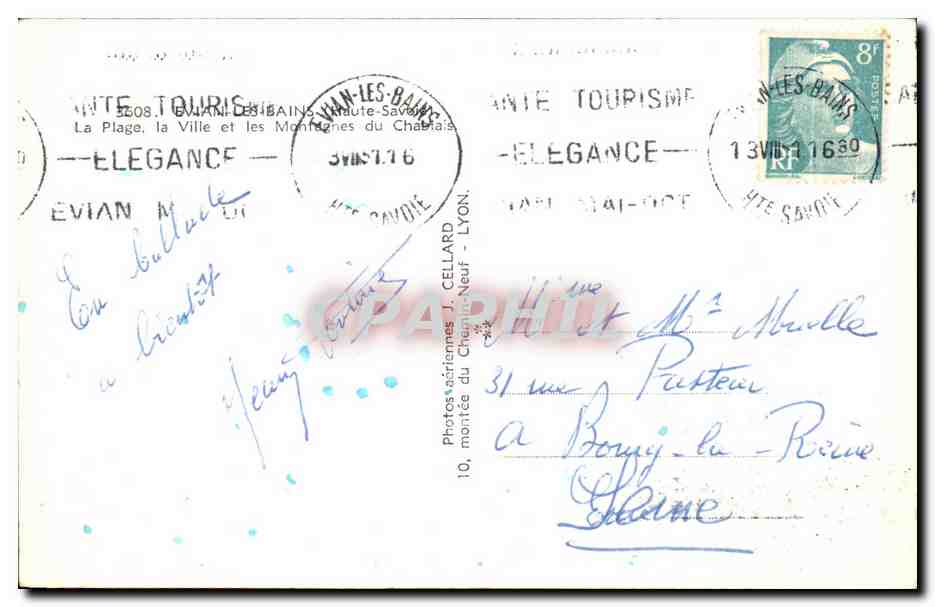 3608. EVIAN-LES-BAINS (Haute-Savoie)
La Plage, la Ville et les Montagnes du Chablais.
ANTE TOURISME
ELEGANCE
EVIAN MAI-OCT
EVIAN-LES-BAINS
3VIII51.16
HTE SAVOIE
ANTE TOURISME
ELEGANCE
VIAN MAI-OCT
AN-LES-BAINS
13VIII 1 1630
HTE SAVOIE
8F
POSTES
RF
En ballade
a bientôt
Photos aériennes J. CELLARD
10, montée du Chemin-Neuf - LYON.
CPAPHIL
Mme et Mr
31 rue Pasteur
A Bourg-la-Reine
Seine